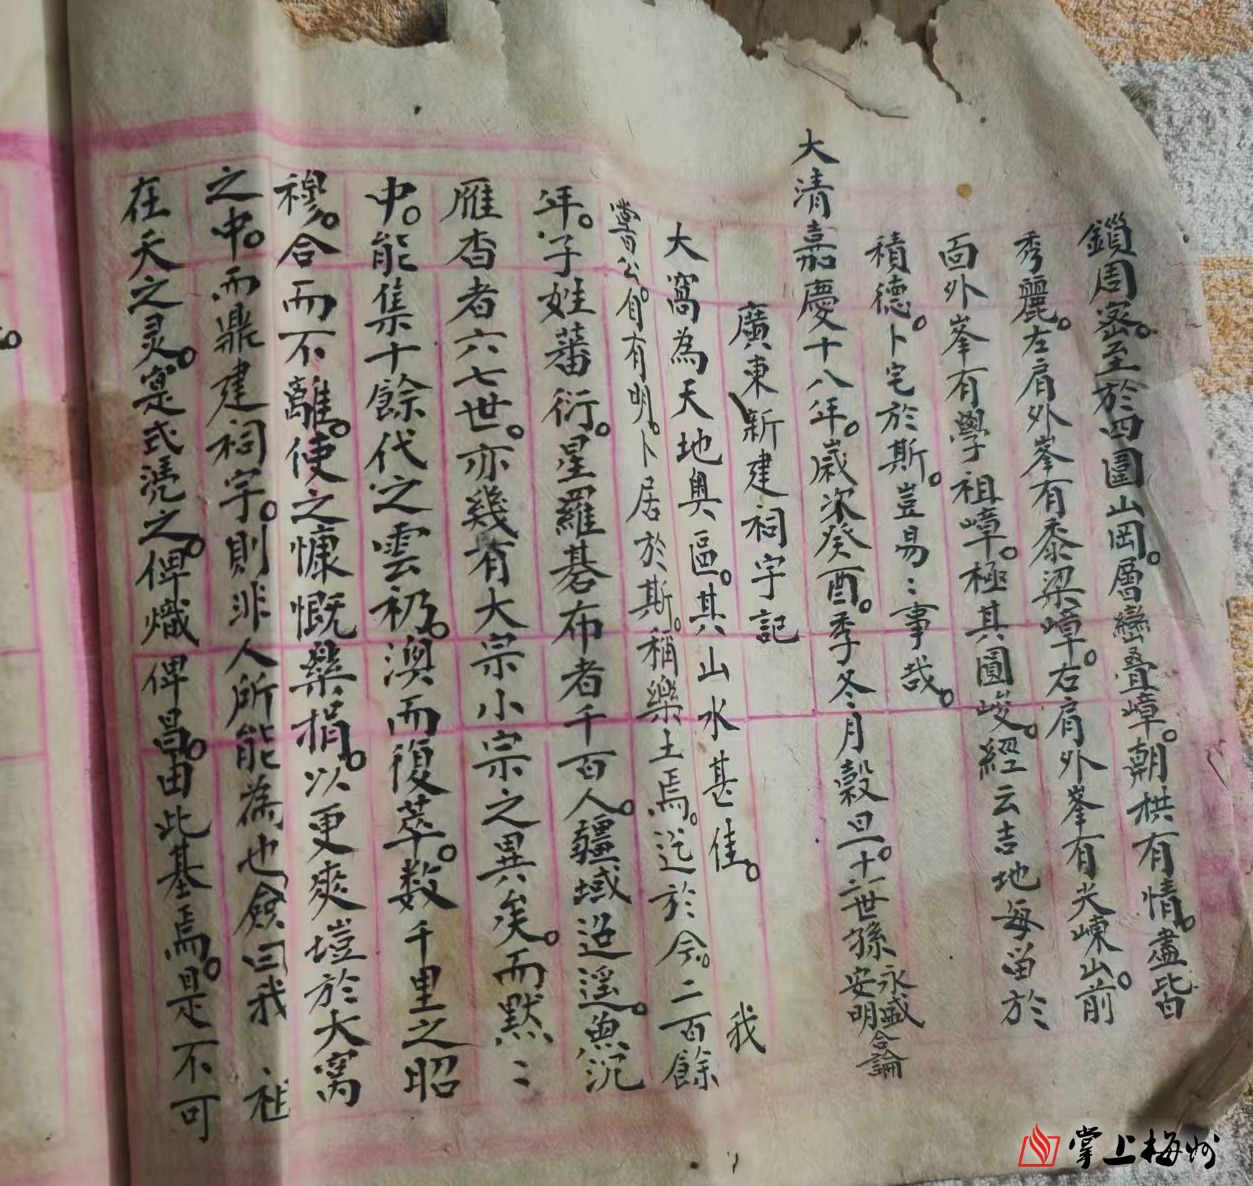 鎖周密。至於四圍山岡。層巒叠嶂。朝拱有情。盡皆
秀麗。左肩外峯有黍梁嶂。右肩外峯有尖崠山。前
面外峯有學祖嶂。極其圓峻。經云吉地每畄於
積德。卜宅於斯。豈易〻事哉。
大清嘉慶十八年。歲次癸酉。季冬月穀旦。十世孫永盛安明合論
廣東新建祠宇記
大窩為天地奥區。其山水甚佳。我
嘗公。有明。卜居於斯。稱樂土焉。迄於今。二百餘
年。子姓蕃衍。星羅碁布者千百人。疆域迢遥。魚沉
雁杳者六七世。亦幾有大宗小宗之異矣。而默〻
中。能集十餘代之雲礽。渙而復萃。数千里之昭
穆。合而不離。使之慷慨樂捐。以更爽塏於大窩
之中。而鼎建祠宇。則非人所能為也。僉曰我 祖
在天之灵。寔式凭之。俾熾俾昌。由此基焉。是不可
掌上梅州